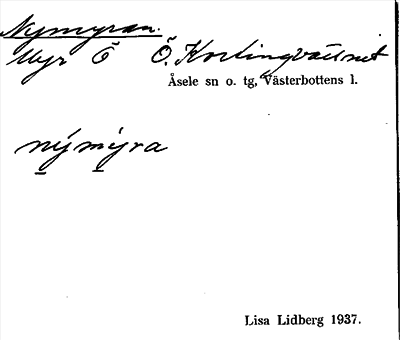 Nymyran.
Myr Ö Ö. Kortingvattnet
Åsele sn o. tg, Västerbottens l.
nýmýra
Lisa Lidberg 1937.